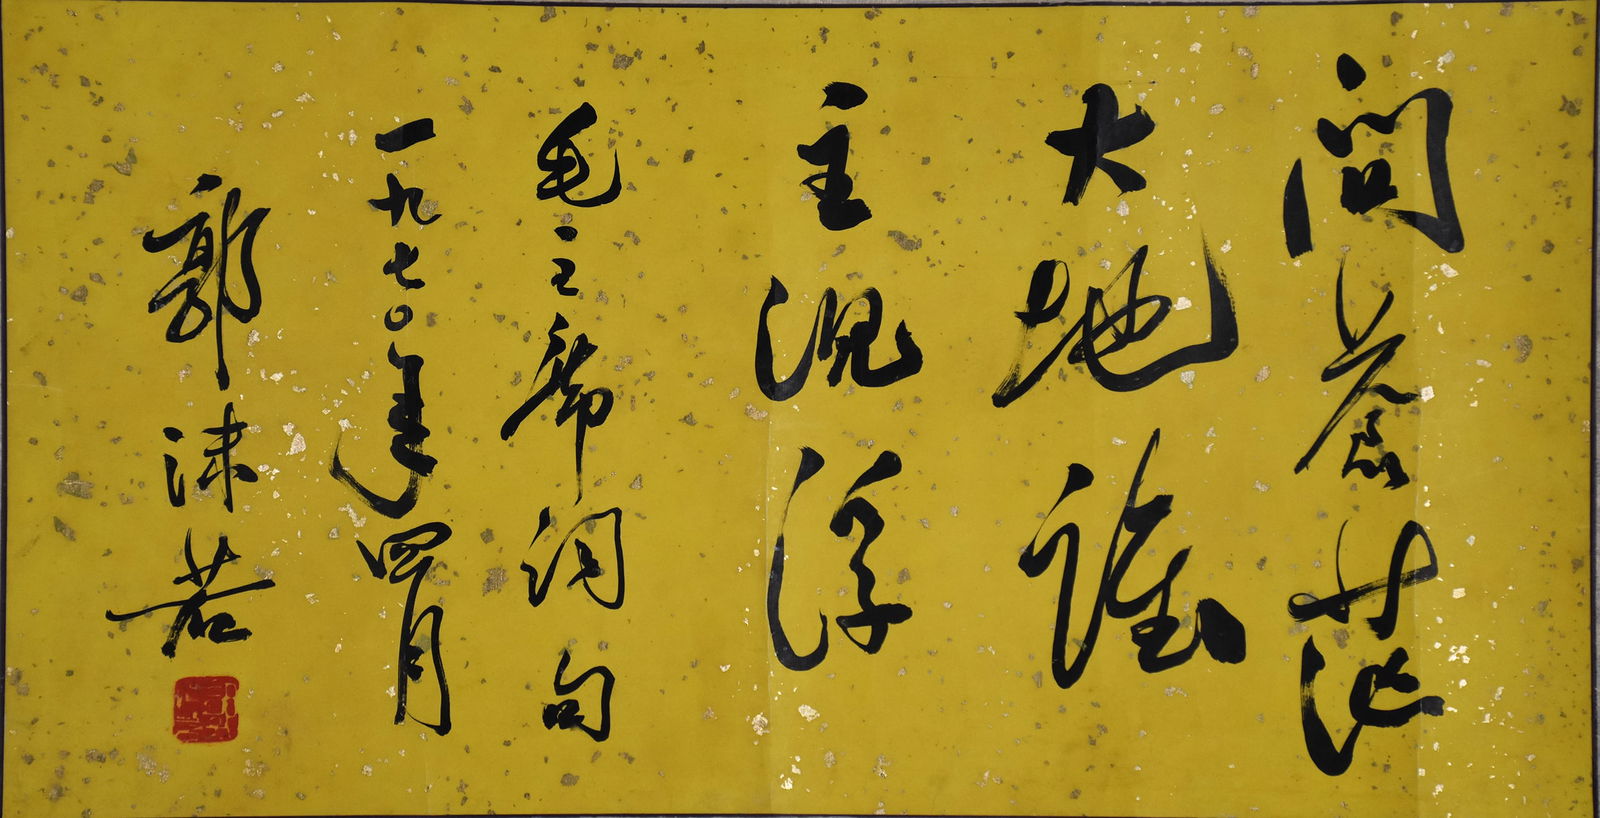 問蒼茫
大地誰
主沉浮
毛主席詞句
一九七〇年四月
郭沫若